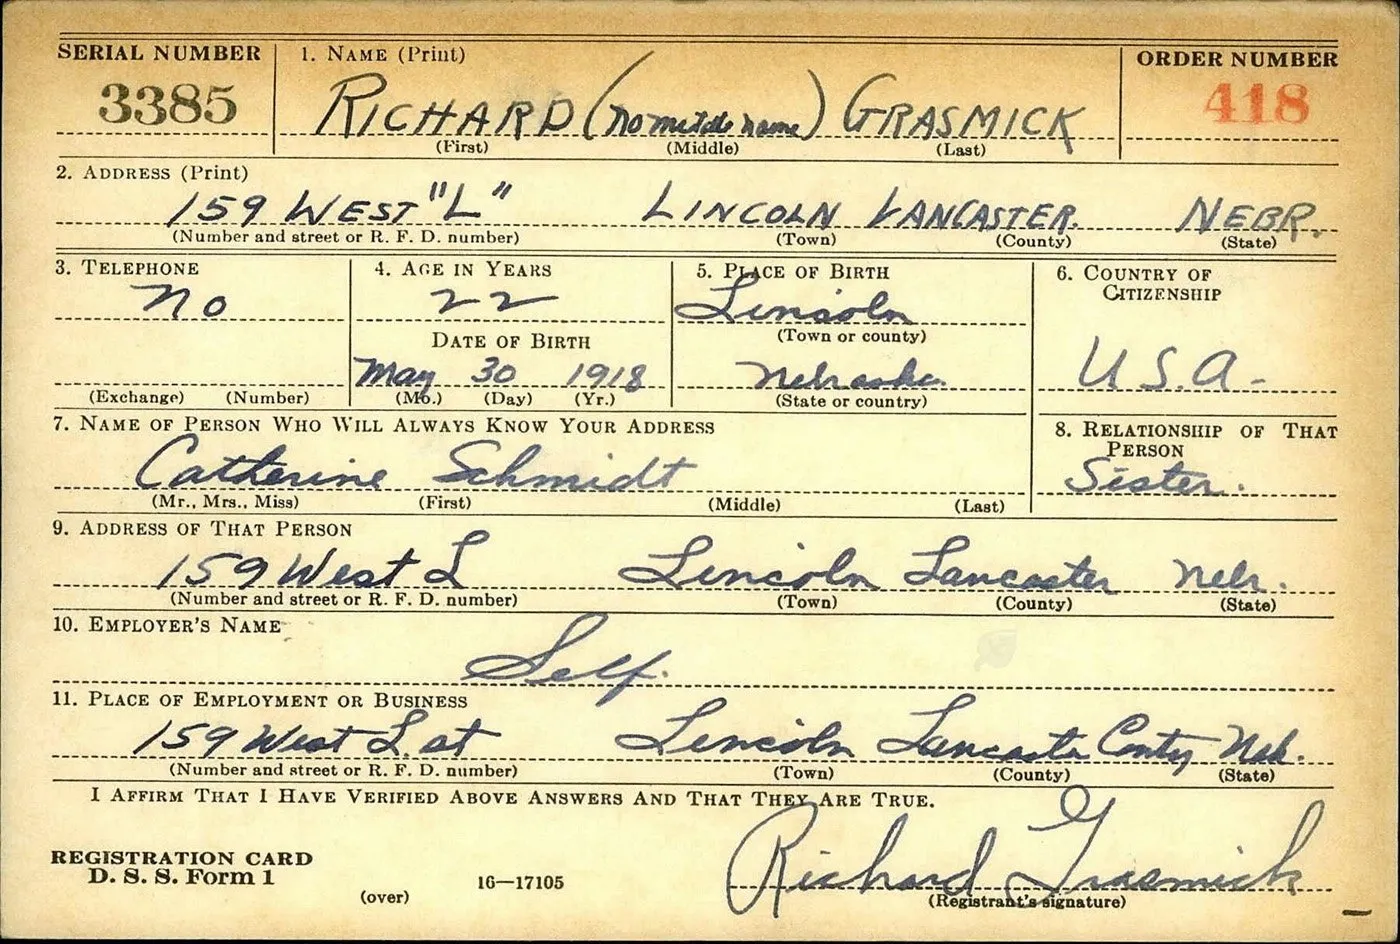 SERIAL NUMBER 1. NAME (Print) ORDER NUMBER
3385 RICHARD (no middle name) GRASMICK 418
(First) (Middle) (Last)
2. ADDRESS (Print)
159 WEST "L" LINCOLN LANCASTER. NEBR.
(Number and street or R. F. D. number) (Town) (County) (State)
3. TELEPHONE 4. AGE IN YEARS 5. PLACE OF BIRTH 6. COUNTRY OF CITIZENSHIP
no 22 Lincoln
(Town or county)
DATE OF BIRTH
May 30 1918 Nebraska. U.S.A-
(Exchange) (Number) (Mo.) (Day) (Yr.) (State or country)
7. NAME OF PERSON WHO WILL ALWAYS KNOW YOUR ADDRESS 8. RELATIONSHIP OF THAT PERSON
Catherine Schmidt Sister.
(Mr., Mrs., Miss) (First) (Middle) (Last)
9. ADDRESS OF THAT PERSON
159 West L Lincoln Lancaster Nebr.
(Number and street or R. F. D. number) (Town) (County) (State)
10. EMPLOYER'S NAME
Self.
11. PLACE OF EMPLOYMENT OR BUSINESS
159 West L. st Lincoln Lancaster Conty Neb.
(Number and street or R. F. D. number) (Town) (County) (State)
I AFFIRM THAT I HAVE VERIFIED ABOVE ANSWERS AND THAT THEY ARE TRUE.
Richard Grasmick
(Registrant's signature)
REGISTRATION CARD
D. S. S. Form 1
(over) 16—17105